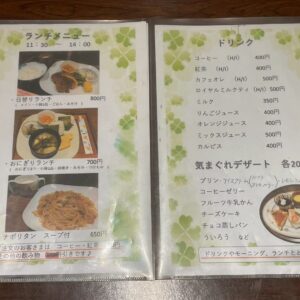 ランチメニュー
11:30 ～ 14:00
・日替りランチ 800円
・おにぎりランチ 700円
ナポリタン スープ付 650円
ご注文のお客さまは コーヒー・紅茶
の他の飲み物 引きですよ
ドリンク
コーヒー (H/I) 400円
紅茶 (H/I) 400円
カフェオレ (H/I) 500円
ロイヤルミルクティ (H/I) 500円
ミルク 350円
りんごジュース 400円
オレンジジュース 400円
ミックスジュース 500円
カルピス 400円
気まぐれデザート 各20
プリン
コーヒーゼリー
フルーツ牛乳かん
チーズケーキ
チョコ蒸しパン
ういろう など
ドリンクやモーニング、ランチと